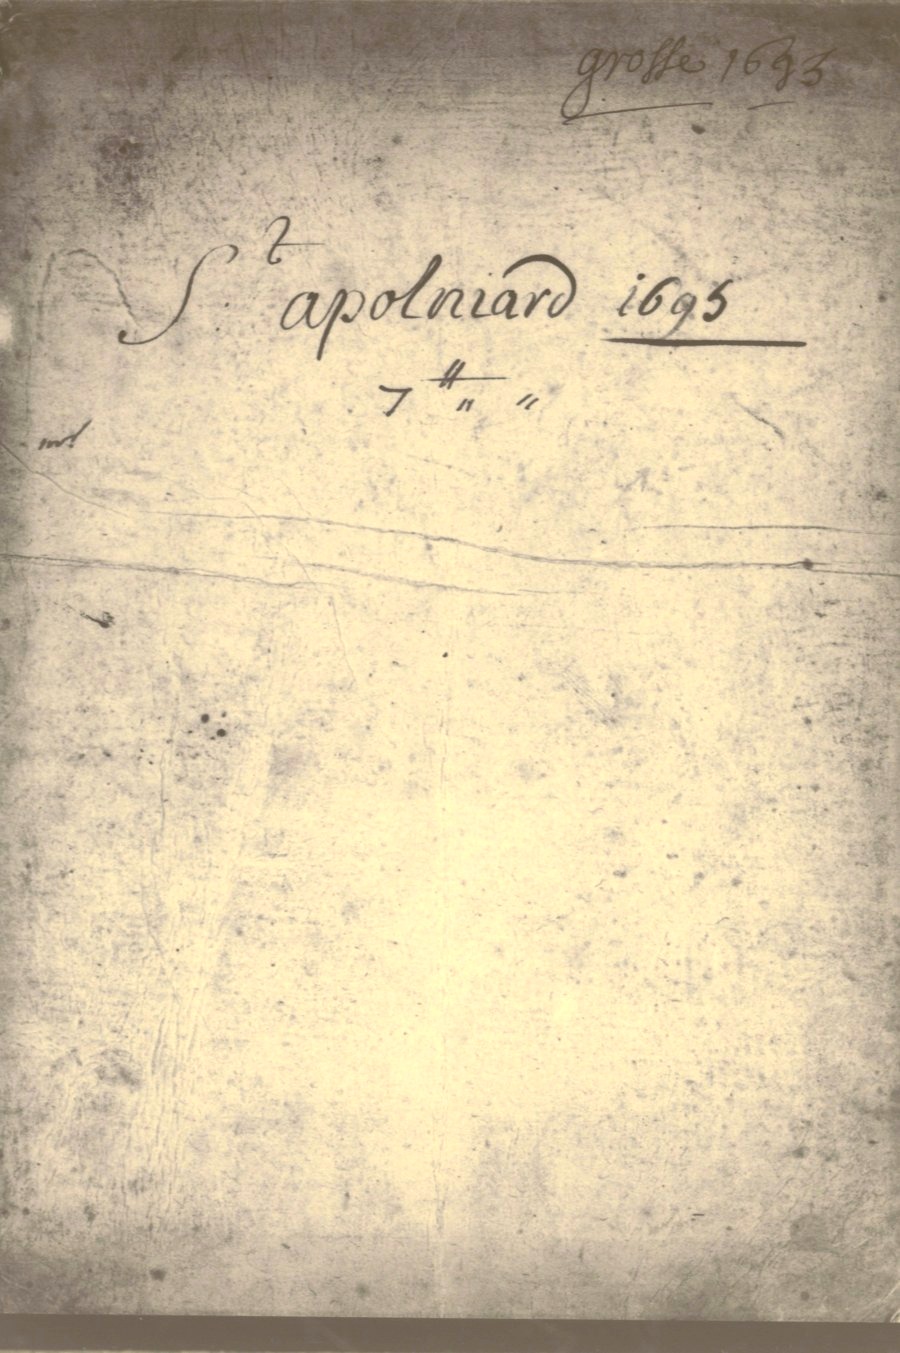 grosse 1693
S.t apolniard 1695
7 ₶ " "